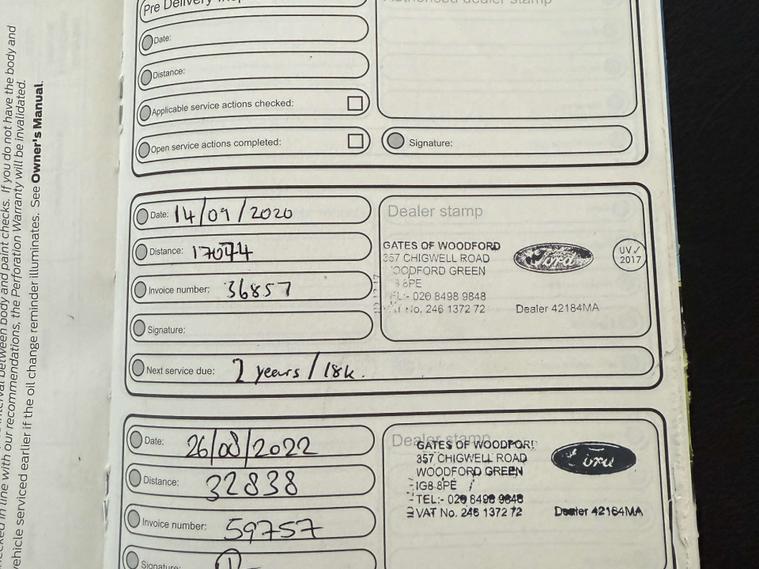 Pre Delivery
Date:
Distance:
Applicable service actions checked:
Open service actions completed:
Authorised dealer stamp
Signature:
Date: 14/09/2020
Distance: 17044
Invoice number: 36857
Signature:
Next service due: 2 years / 18k.
Dealer stamp
GATES OF WOODFORD
357 CHIGWELL ROAD
WOODFORD GREEN
8PE
TEL:- 020 8498 9848
VAT No. 246 1372 72
Ford
Dealer 42184MA
UV✓
2017
Date: 26/08/2022
Distance: 32838
Invoice number: 59757
Signature:
Dealer stamp
GATES OF WOODFORD
357 CHIGWELL ROAD
WOODFORD GREEN
IG8 8PE
TEL:- 020 8498 9848
VAT No. 246 1372 72
Ford
Dealer 42164MA
interval between body and paint checks. If you do not have the body and
checked in line with our recommendations, the Perforation Warranty will be invalidated.
vehicle serviced earlier if the oil change reminder illuminates. See Owner's Manual.